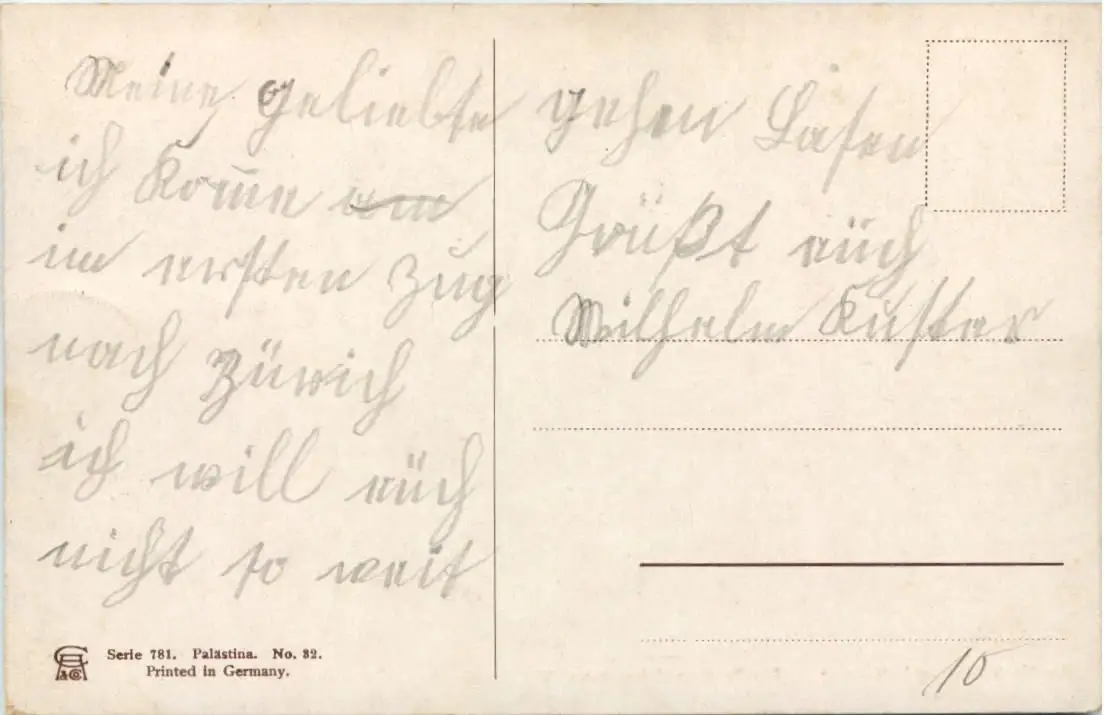 Meine geliebte
ich kom̅e am
im ersten Zug
nach Zürich
ich will euch
nicht so weit
gehen Lasen
Grüßt euch
Wilhelm Kuster
Serie 781. Palästina. No. 82.
Printed in Germany.
10